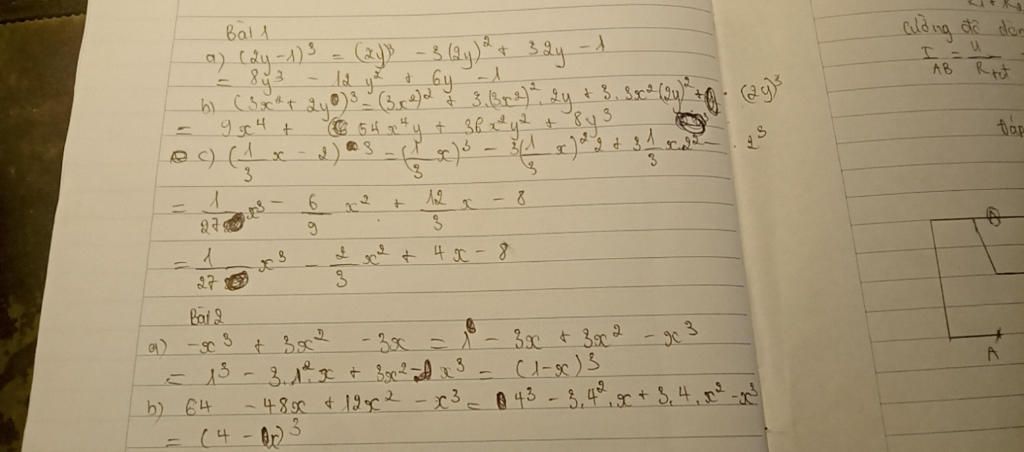 Bài 1
a) (2y-1)³ = (2y)³ - 3(2y)² + 3 2y - 1
= 8y3 - 12y² + 6y - 1
b) (3x² + 2y)³ = (3x²)² + 3.(3x²)². 2y + 3. 3x²(2y)² + (2y)³
= 9x⁴ + 54x⁴y + 36x²y² + 8y³
c) (1/3 x - 2)³ = (1/3 x)³ - 3(1/3 x)² 2 + 3 1/3 x.2² - 2³
= 1/27 x³ - 6/9 x² + 12/3 x - 8
= 1/27 x³ - 2/3 x² + 4x - 8
Bài 2
a) -x³ + 3x² - 3x = 1 - 3x + 3x² - x³
= 1³ - 3.1².x + 3x² - x³ = (1-x)³
b) 64 - 48x + 12x² - x³ = 4³ - 3.4².x + 3.4.x² - x³
= (4 - x)³
cường độ dòn
I AB = U / Rtđ
A